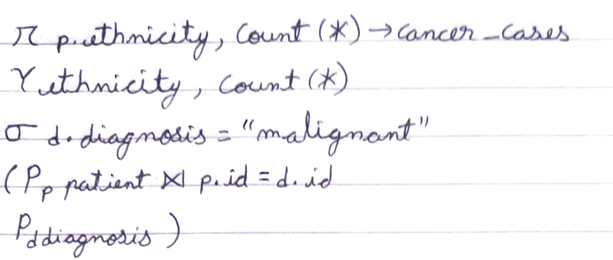 π p.ethnicity, Count (*) → cancer_cases
γ ethnicity, Count (*)
σ d.diagnosis = "malignant"
(ρ p patient ⋈ p.id = d.id
ρ d diagnosis)